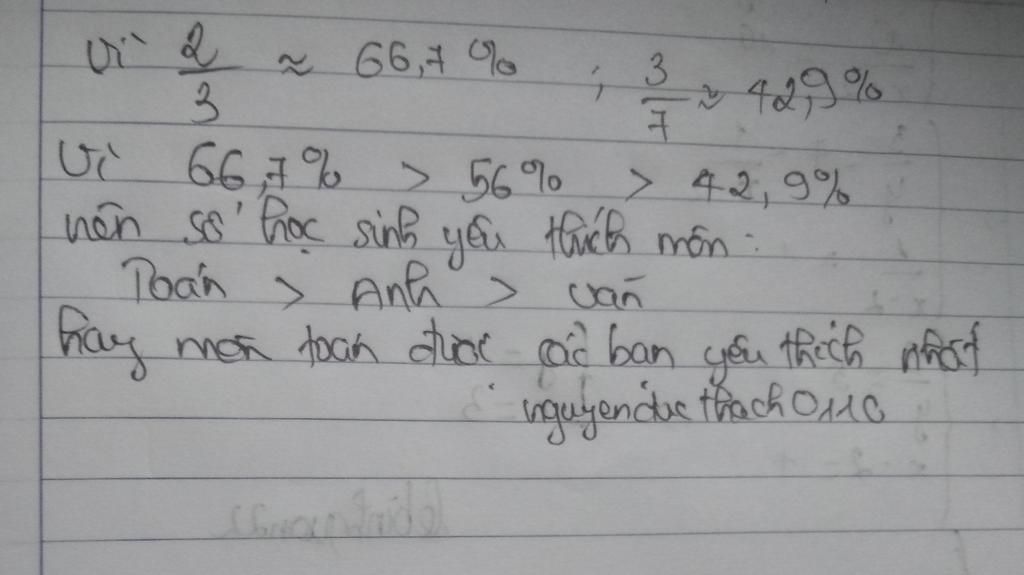 Vì 2/3 ≈ 66,7% ; 3/7 ≈ 42,9%
Vì 66,7% > 56% > 42,9%
nên số học sinh yêu thích môn :
Toán > Anh > văn
hay môn toán được các bạn yêu thích nhất
nguyenducthach0110